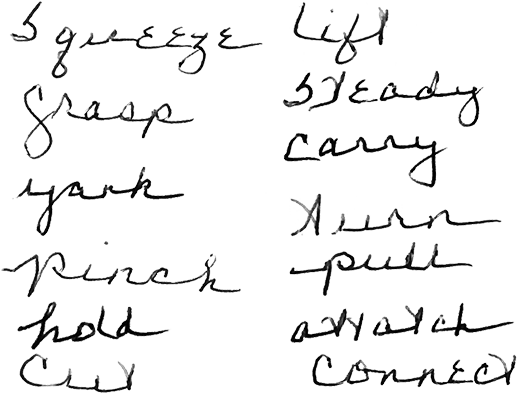 Squeeze
Grasp
yank
pinch
hold
Cut
Lift
Steady
Carry
turn
pull
attatch
Connect